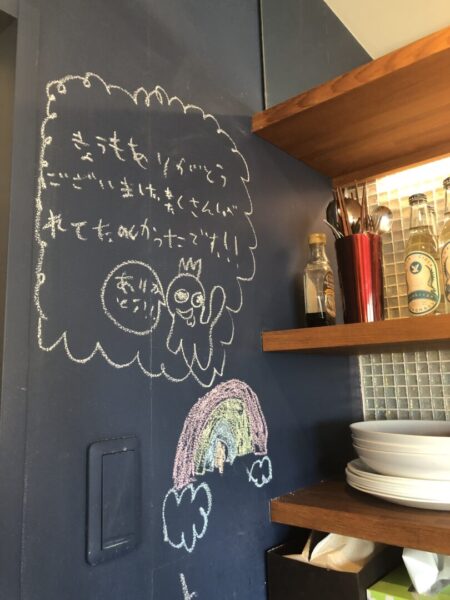 きょうもありがとう
ございました。たくさんしゃべ
れてたのしかったです!!
ありが
とう!!